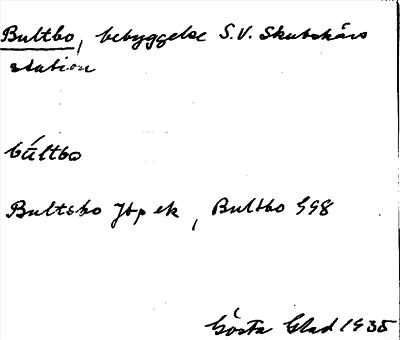 Bultbo, bebyggelse S.V. Skutskärs
station
búltbo
Bultsbo Jtp ek, Bultbo GGB
Gösta Glad 1935